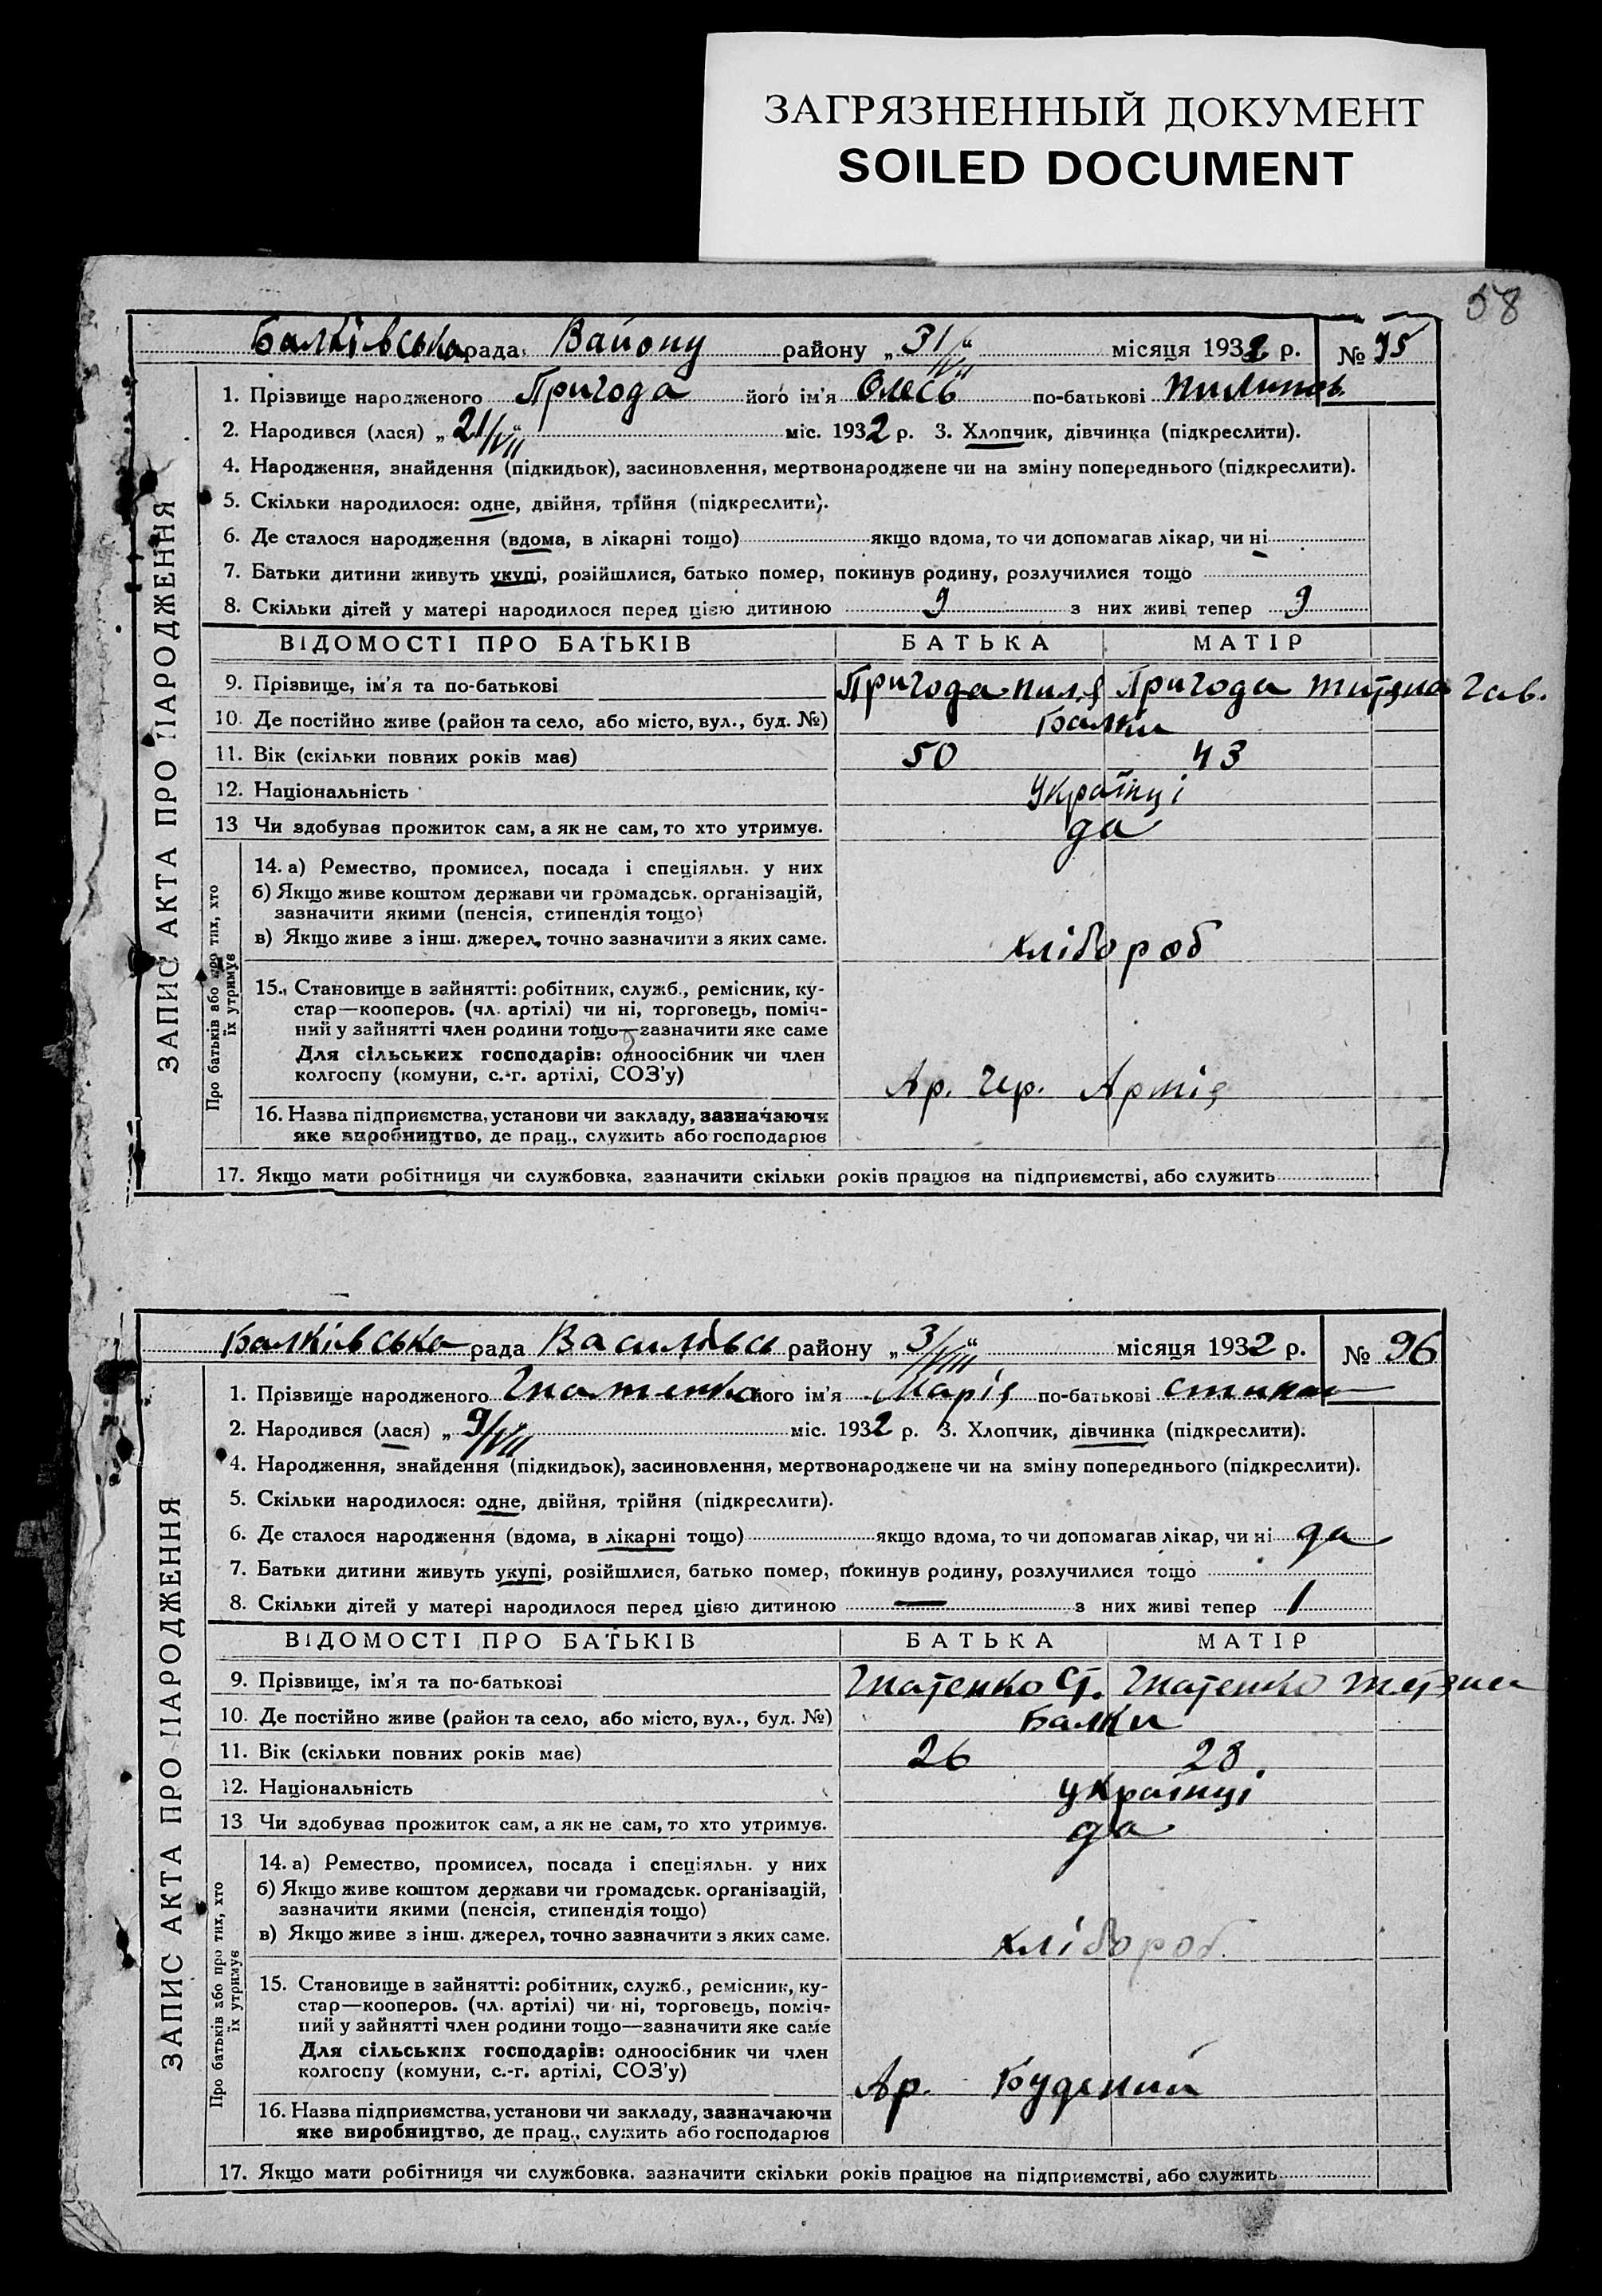 ЗАГРЯЗНЕННЫЙ ДОКУМЕНТ
SOILED DOCUMENT
58
Балківська рада Району району „31/VII“ місяця 1932 р. № 95
1. Прізвище народженого Пригода його ім'я Олесь по-батькові Пилипов.
2. Народився (лася) „21/VII“ міс. 1932 р. 3. Хлопчик, дівчинка (підкреслити).
4. Народження, знайдення (підкидьок), засиновлення, мертвонароджене чи на зміну попереднього (підкреслити).
5. Скільки народилося: одне, двійня, трійня (підкреслити).
6. Де сталося народження (вдома, в лікарні тощо) якщо вдома, то чи допомагав лікар, чи ні
7. Батьки дитини живуть укупі, розійшлися, батько помер, покинув родину, розлучилися тощо
8. Скільки дітей у матері народилося перед цією дитиною 9 з них живі тепер 9
ВІДОМОСТІ ПРО БАТЬКІВ БАТЬКА МАТІР
9. Прізвище, ім'я та по-батькові Пригода Пил. Пригода Титяна Гав.
10. Де постійно живе (район та село, або місто, вул., буд. №) Балки
11. Вік (скільки повних років має) 50 43
12. Національність Українці
13 Чи здобував прожиток сам, а як не сам, то хто утримує. да
14. а) Ремество, промисел, посада і спеціяльн. у них
б) Якщо живе коштом держави чи громадськ. організацій,
зазначити якими (пенсія, стипендія тощо)
в) Якщо живе з інш. джерел, точно зазначити з яких саме. хлібороб
15. Становище в зайнятті: робітник, служб., ремісник, ку-
стар—кооперов. (чл. артілі) чи ні, торговець, поміч-
ний у зайнятті член родини тощо—зазначити яке саме
Для сільських господарів: одноосібник чи член
колгоспу (комуни, с.-г. артілі, СОЗ'у) Ар. Чер. Армія
16. Назва підприємства, установи чи закладу, зазначаючи
яке виробництво, де прац., служить або господарює
17. Якщо мати робітниця чи службовка, зазначити скільки років працює на підприємстві, або служить
ЗАПИС АКТА ПРО НАРОДЖЕННЯ
Про батьків або про тих, хто
їх утримує
Балківська рада Василівсь району „3/VIII“ місяця 1932 р. № 96
1. Прізвище народженого Гнатенко його ім'я Марія по-батькові Степан
2. Народився (лася) „9/VII“ міс. 1932 р. 3. Хлопчик, дівчинка (підкреслити).
4. Народження, знайдення (підкидьок), засиновлення, мертвонароджене чи на зміну попереднього (підкреслити).
5. Скільки народилося: одне, двійня, трійня (підкреслити).
6. Де сталося народження (вдома, в лікарні тощо) якщо вдома, то чи допомагав лікар, чи ні да
7. Батьки дитини живуть укупі, розійшлися, батько помер, покинув родину, розлучилися тощо
8. Скільки дітей у матері народилося перед цією дитиною — з них живі тепер 1
ВІДОМОСТІ ПРО БАТЬКІВ БАТЬКА МАТІР
9. Прізвище, ім'я та по-батькові Гнатенко Ст. Гнатенко Тетяна
10. Де постійно живе (район та село, або місто, вул., буд. №) Балки
11. Вік (скільки повних років має) 26 28
12. Національність Українці
13 Чи здобував прожиток сам, а як не сам, то хто утримує. да
14. а) Ремество, промисел, посада і спеціяльн. у них
б) Якщо живе коштом держави чи громадськ. організацій,
зазначити якими (пенсія, стипендія тощо)
в) Якщо живе з інш. джерел, точно зазначити з яких саме. хлібороб
15. Становище в зайнятті: робітник, служб., ремісник, ку-
стар—кооперов. (чл. артілі) чи ні, торговець, поміч-
ний у зайнятті член родини тощо—зазначити яке саме
Для сільських господарів: одноосібник чи член
колгоспу (комуни, с.-г. артілі, СОЗ'у) Ар. Будений
16. Назва підприємства, установи чи закладу, зазначаючи
яке виробництво, де прац., служить або господарює
17. Якщо мати робітниця чи службовка, зазначити скільки років працює на підприємстві, або служить
ЗАПИС АКТА ПРО НАРОДЖЕННЯ
Про батьків або про тих, хто
їх утримує